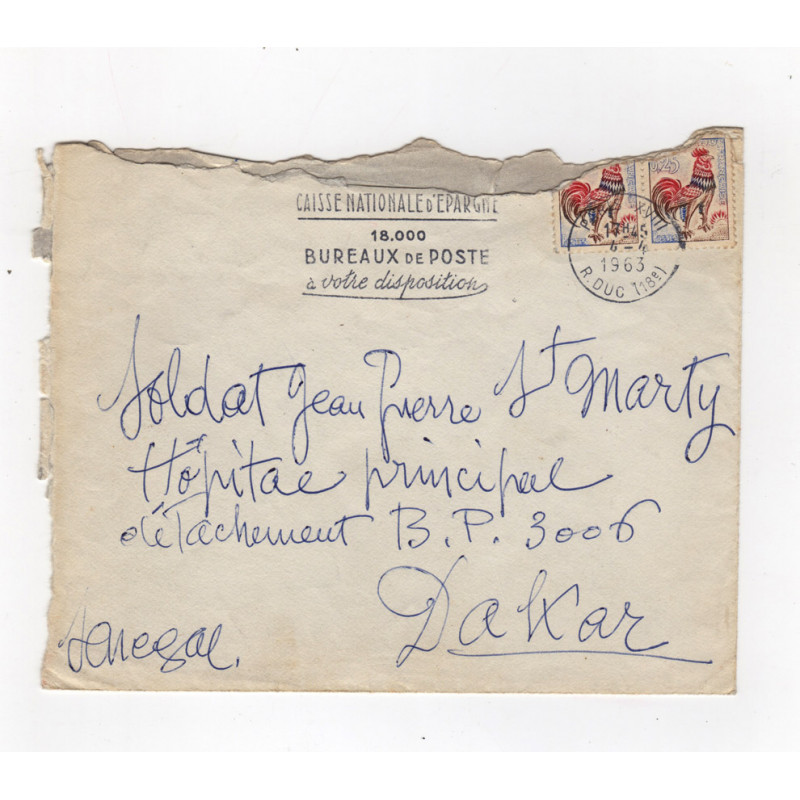 CAISSE NATIONALE D'EPARGNE
18.000
BUREAUX DE POSTE
à votre disposition
0,25
17H45
4-4
1963
R. DUC (18e)
Soldat Jean Pierre St Marty
Hôpital principal
détachement B.P. 3006
Dakar
Senegal.